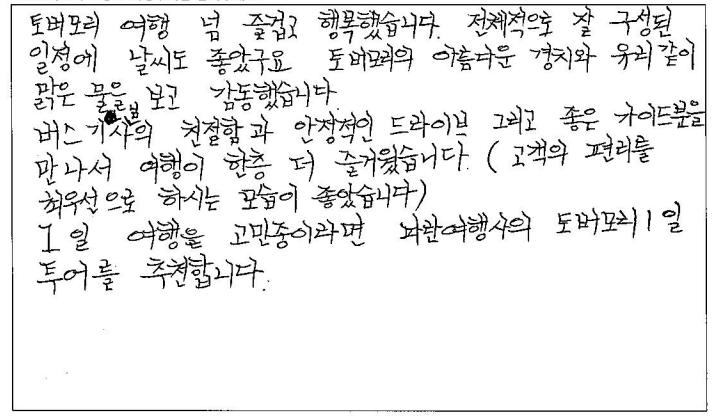 토버모리 여행 넘 즐겁고 행복했습니다. 전체적으로 잘 구성된
일정에 날씨도 좋았구요 토버모리의 아름다운 경치와 유리같이
맑은 물을 보고 감동했습니다.
버스기사님의 친절함과 안정적인 드라이브 그리고 좋은 가이드분을
만나서 여행이 한층 더 즐거웠습니다. (고객의 편리를
최우선으로 하시는 모습이 좋았습니다)
1일 여행을 고민중이라면 파란여행사의 토버모리 1일
투어를 추천합니다.